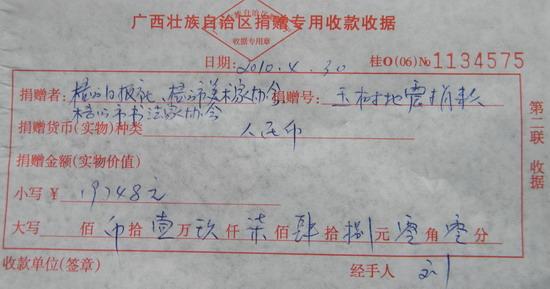 广西壮族自治区捐赠专用收款收据
收据专用章
日期: 2010.4.30 桂O(06)№1134575
捐赠者: 梧州日报社、梧州市美术家协会 捐赠号: 玉树地震捐款
梧州市书法家协会
捐赠货币(实物)种类 人民币
捐赠金额(实物价值)
小写¥ 19748元
大写 佰 币 拾 壹 万 玖 仟 柒 佰 肆 拾 捌 元 零 角 零 分
收款单位(签章) 经手人
第二联 收据